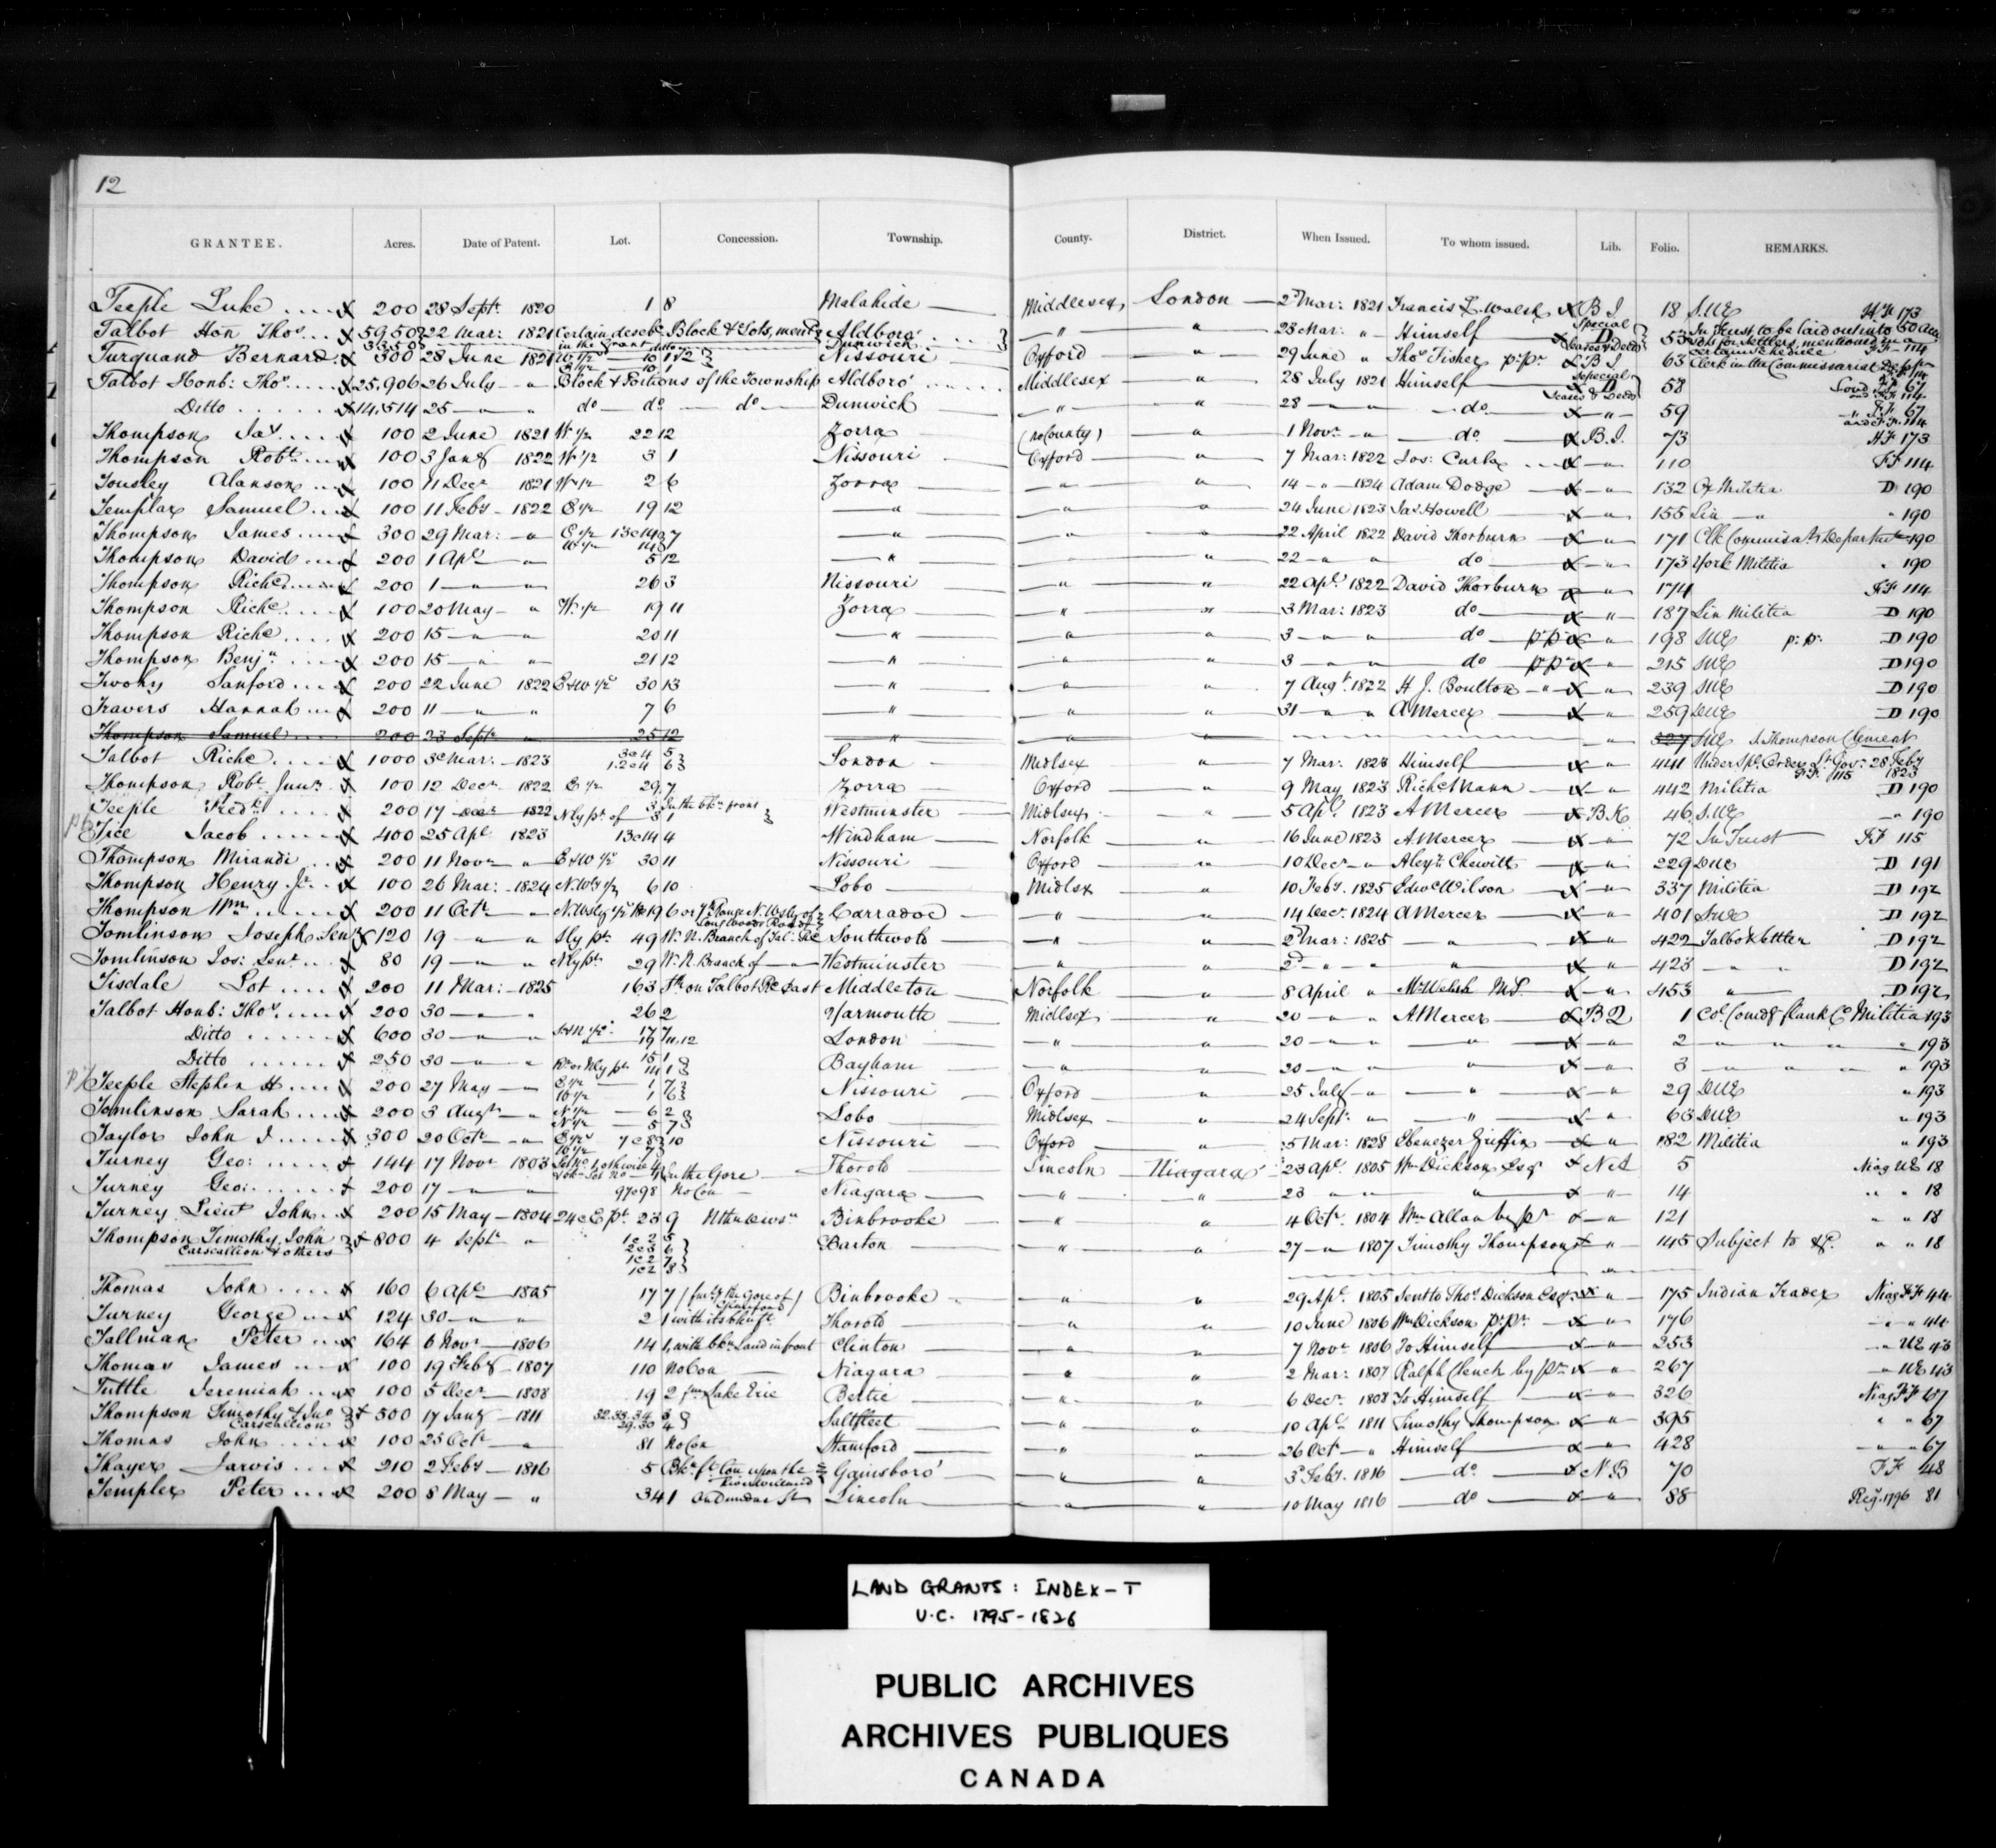 12
GRANTEE. Acres. Date of Patent. Lot. Concession. Township. County. District. When Issued. To whom issued. Lib. Folio. REMARKS.
Teeple Luke 200 28 Sept. 1820 1 8 Malahide Middlesex London 2d Mar: 1821 Francis L. Walsh B I 18 SUE
Talbot Hon Thos 22 Mar: 1821 Block & Lots, mentd Aldboro' Dunwich " " 23 Mar: " Himself Special D Leases & Deeds 53 In Trust to be laid out into 50 acre
Turquand Bernard 300 28 June 1821 Nissouri Oxford " 29 June " Thos Fisher p: pr B I 63 Clerk in the Commissariat Dept
Talbot Honb: Thos 25,906 26 July " Block & Portions of the Township Aldboro' Middlesex " 28 July 1821 Himself Special D Leases & Deeds 58
Ditto 14,514 25 " " do do do Dunwich " " 28 " " do " 59
Thompson Jas 100 2 June 1821 W 1/2 22 12 Zorra (no County) " 1 Novr " do B.I. 73
Thompson Robt 100 3 Jany 1822 W 1/2 3 1 Nissouri Oxford " 7 Mar: 1822 " 110 FF 114
Tousley Alanson 100 11 Decr 1821 2 6 Zorra " " 14 " 1824 Adam Dodge " 132 Militia D 190
Templar Samuel 100 11 Feby 1822 E 1/2 19 12 " " " 24 June 1823 Jas Howell " 155 Lin " " 190
Thompson James 300 29 Mar: " E 1/2 " " " 22 April 1822 David Thorburn " 171 190
Thompson David 200 1 Apl " 5 12 " " 22 " " do " 173 York Militia " 190
Thompson Richd 200 1 " " 26 3 Nissouri " " 22 Apl 1822 David Thorburn " 174 FF 114
Thompson Richd 100 20 May " W 1/2 19 11 Zorra " " 3 Mar: 1823 do " 187 Lin Militia D 190
Thompson Richd 200 15 " " 20 11 " " " 3 " " do p: p: " 198 SUE p: p: D 190
Thompson Benjn 200 15 " " 21 12 " " " 3 " " do p: p: " 215 SUE D 190
Sanford 200 22 June 1822 E & W 1/2 30 13 " " " 7 Augt 1822 H J. Boulton " " 239 SUE D 190
Travers Hannah 200 11 " " 7 6 " " " 31 " " A Mercer " 259 DUE D 190
Thompson Samuel 200 23 Septr " 25 12 " " " " 327 SUE
Talbot Richd 1000 3d Mar: 1823 3 & 4 5 1.2 & 4 6 London Midlsex " 7 Mar: 1823 Himself " 441 Under Spl. Order Lt Gov: 28 Feby 1823 FF 115
Thompson Robt Junr 100 12 Decr 1822 E 1/2 29 7 Zorra Oxford " 9 May 1823 Richd Mann " 442 Militia D 190
Teeple Fredk 200 17 Decr 1822 Nly pt of 3 1 Westminster Midlsex " 5 Apl 1823 A Mercer B K 46 SUE " 190
Tice Jacob 400 25 Apl 1823 13 & 14 4 Windham Norfolk " 16 June 1823 A Mercer " 72 In Trust FF 115
Thompson Mirandi 200 11 Novr " E & W 1/2 30 11 Nissouri Oxford " 10 Decr " Alexr Chewitt " 229 DUE D 191
Thompson Henry Jr 100 26 Mar: 1824 6 10 Lobo Midlsx " 10 Feby 1825 Edwd Wilson " 337 Militia D 192
Thompson Wm 200 11 Octr " Carradoc " " 14 Decr 1824 A Mercer " 401 SUE D 192
Tomlinson Joseph Senr 120 19 " " Sly pt 49 W. N. Branch of Tal: Rd Southwold " " 2d Mar: 1825 " " 422 Talbot Settler D 192
Tomlinson Jos: Senr 80 19 " " Nly pt 29 W. N. Branch of " Westminster " " 2d " " " " 423 " " D 192
Tisdale Lot 200 11 Mar: 1825 163 Sth on Talbot Rd East Middleton Norfolk " 8 April " Mr Walsh M P. " 453 " D 192
Talbot Honb: Thos 200 30 " " 26 2 Yarmouth Midlsex " 20 " " A Mercer B Q 1 Col Comdg flank Co Militia 193
Ditto 600 30 " " London " " 20 " " " " 2 " " " " 193
Ditto 250 30 " " Bayham " " 20 " " " 3 " " " " 193
Teeple Stephen H 200 27 May " Nissouri Oxford " 25 July " " " 29 DUE " 193
Tomlinson Sarah 200 3 Augt " N 1/2 6 2 N 1/2 5 7 Lobo Midlsex " 24 Sept: " " " 63 DUE " 193
Taylor John J 300 20 Octr " 10 Nissouri Oxford " 5 Mar: 1828 Ebenezer Griffin " 182 Militia " 193
Turney Geo: 144 17 Novr 1803 In the Gore Thorold Lincoln Niagara 23 Apl 1805 Wm Dickson Esqr N A 5 Niag UE 18
Turney Geo: 200 17 " " 97 & 98 No Con Niagara " " 23 " " " " 14 " " 18
Turney Lieut John 200 15 May 1804 23 9 Binbrooke " " 4 Octr 1804 Wm Allan by pr " 121 " " 18
Thompson Timothy, John Carscallion & others 800 4 Septr " 1 & 2 5 2 & 3 6 1 & 2 7 1 & 2 8 Barton " " 27 " 1807 Timothy Thompson " 145 Subject to " " 18
Thomas John 160 6 Apl 1805 17 7 Binbrooke " " 29 Apl 1805 Sent to Thos Dickson Esqr " 175 Indian Trader Niag FF 44
Turney George 124 30 " " 2 1 with its bkn ft Thorold " " 10 June 1806 Wm Dickson p: pr " 176 " " 44
Tallman Peter 164 6 Novr 1806 14 1, with bkn Land in front Clinton " " 7 Novr 1806 To Himself " 253 " UE 43
Thomas James 100 19 Feby 1807 110 No Con Niagara " " 2 Mar: 1807 Ralph Clench by pr " 267 " UE 43
Tuttle Jeremiah 100 5 Decr 1808 19 2 fm Lake Erie Bertie " " 6 Decr 1808 To Himself " 326 Niag FF 67
Thompson Timothy & Jno Carscallion 500 17 Jany 1811 32.33.34 3 29.30 4 Saltfleet " " 10 Apl 1811 Timothy Thompson " 395 " " 67
Thomas John 100 25 Octr " 81 No Con Stamford " " 26 Octr " Himself " 428 " " 67
Thayer Jarvis 210 2 Feby 1816 5 Gainsboro' " " 3d Feby 1816 do N B 70 FF 48
Templer Peter 200 8 May " 34 1 On Dundas St Lincoln " " 10 May 1816 do " 88 Reg. 1796 81
LAND GRANTS: INDEX-T
U.C. 1795-1826
PUBLIC ARCHIVES
ARCHIVES PUBLIQUES
CANADA